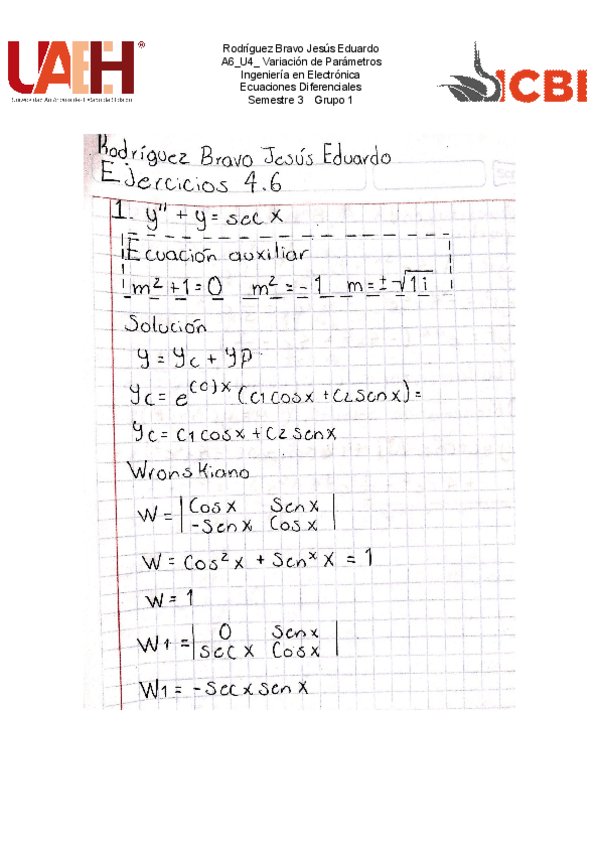 UAEH®
Rodríguez Bravo Jesús Eduardo
A6_U4_ Variación de Parámetros
Ingeniería en Electrónica
Ecuaciones Diferenciales
Semestre 3 Grupo 1
ICBI
Rodríguez Bravo Jesús Eduardo
Ejercicios 4.6
1. y'' + y = sec x
Ecuación auxiliar
m² + 1 = 0 m² = -1 m = ±√1i
Solución
y = yc + yp
yc = e^(0)x (c1 cosx + c2 senx) =
yc = c1 cosx + c2 senx
Wronskiano
W = | Cos x Sen x |
| -Sen x Cos x |
W = Cos² x + Sen^x x = 1
W = 1
W1 = | 0 Sen x |
| sec x Cos x |
W1 = -Sec x sen x